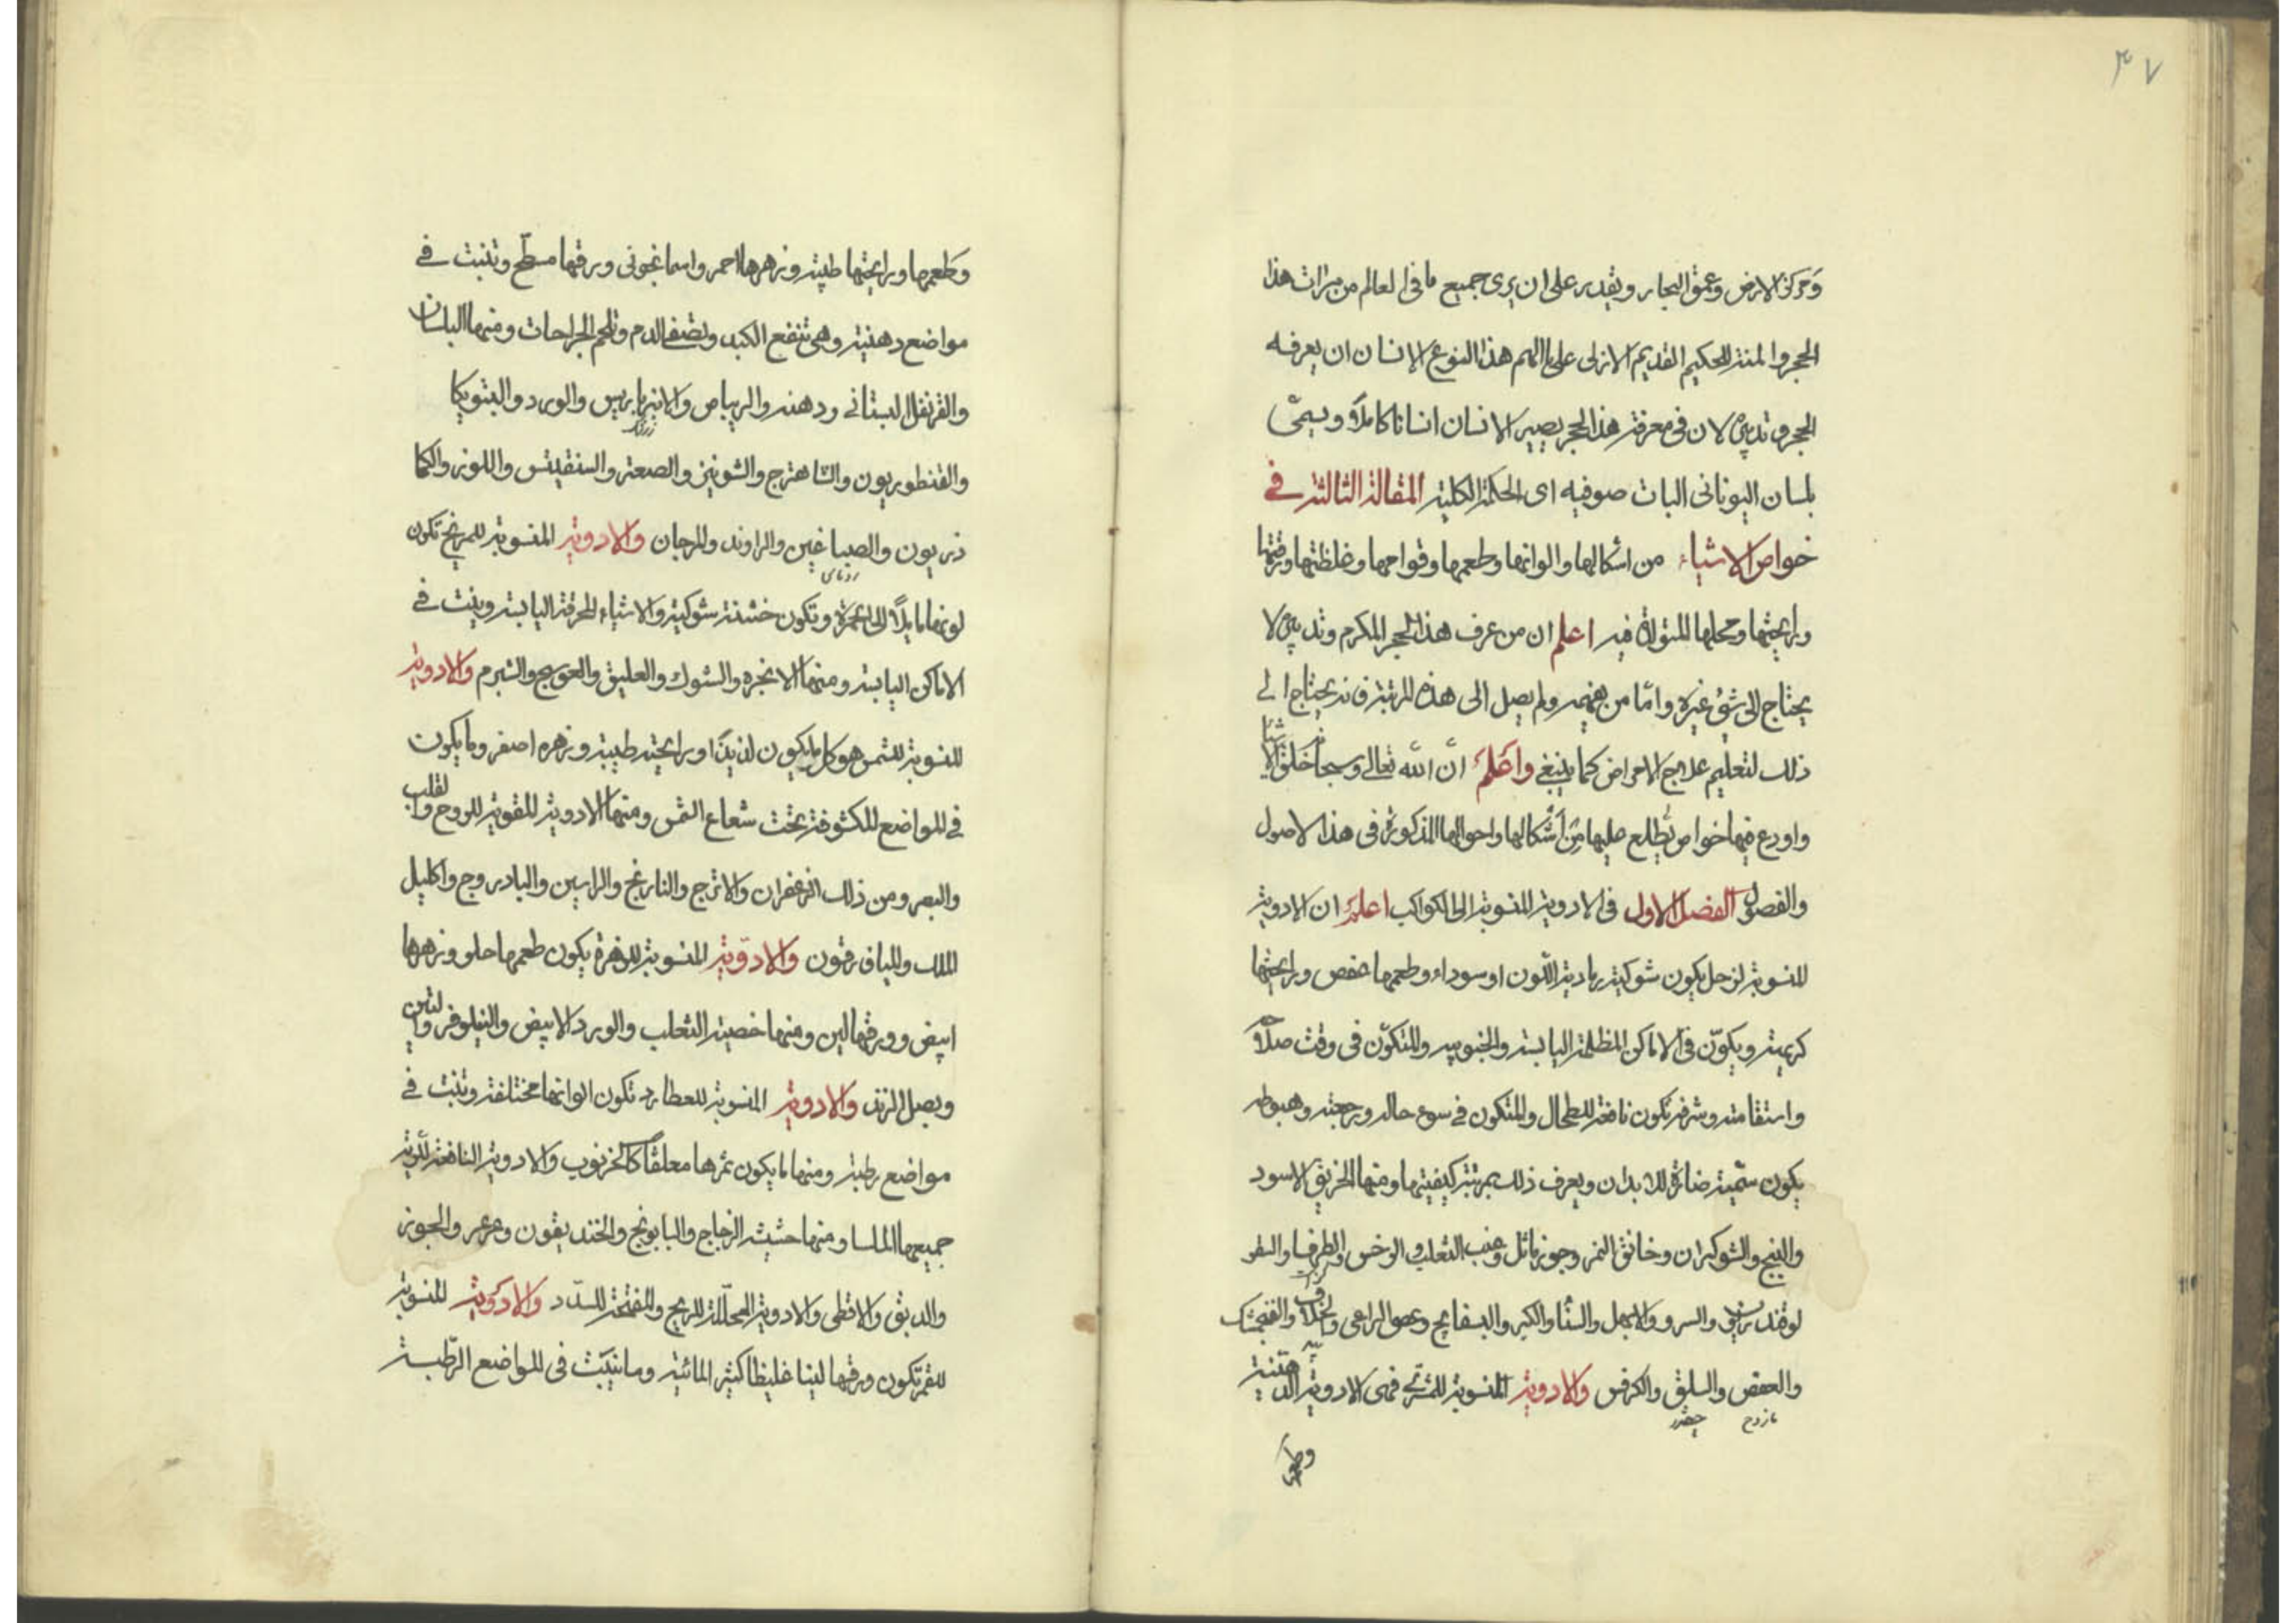 ٣٧
ومركز الارض وعمق البحار ويقدر على ان يرى جميع ما فى العالم من ميرات هذا
الحجر والمنة للحكيم القديم الازلى على ما الهم هذا النوع الانسان ان يعرفه
الحجر وتدبيره لان فى معرفة هذا الحجر يصير الانسان انسانا كاملاً ويسمّى
بلسان اليونانى البات صوفيه اى الحكمة الكلية المقالة الثالثة فى
خواص الاشياء من اشكالها والوانها وطعمها وقوامها وغلظتها ورقتها
ورايحتها ومحلها المتولدة فيه اعلم ان من عرف هذا الحجر المكرم وتدبيره لا
يحتاج الى شئ غيره وامّا من يفهمه ولم يصل الى هذه المرتبة فانه يحتاج الى
ذلك لتعليم علاج الامراض كما ينبغى واعلم انّ الله تعالى وسبحانه خلق الاشياء
واودع فيها خواص يطلع عليها من اشكالها واحوالها المذكورة فى هذا الاصول
والفصول الفصل الاول فى الادوية المنسوبة الى الكواكب اعلم ان الادوية
المنسوبة لزحل يكون شوكية رمادية اللّون او سوداء وطعمها عفص ورايحتها
كريهة ويكوّن فى الاماكن المظلمة اليابسة والجنوبيه والمتكوّن فى وقت صلاحه
واستقامته وشرفه تكون نافعة للطحال والمتكون فى سوء حاله ورجعته وهبوطه
يكون سمّية ضارّة للابدان ويعرف ذلك بمرتبة كيفيتها ومنها الخربق الاسود
والبنج والشوكران وخانق النمر وجوز ماثل وعنب الثعلب والوخس والطرفا والسقو
لوقندريون والسرو والابهل والسنا والكبر والبسفايج وعصى الراعى والخلاف والفنجنشك
والعفص والسلق والكرفس والادوية المنسوبة للمشترى فهى الادوية الدهنية
مازوج چغندر
وطعمها
وطعمها ورايحتها طيبة وزهرها احمر واسمانجونى وورقها مسطّح وتنبت فى
مواضع دهنية وهى تنفع الكبد وتصفى الدم وتلحم الجراحات ومنها البلسان
والقرنفل البستانى ودهنه والريباص والانبرباريس والورد والبتونيكا
والقنطوريون والشاهترج والشونيز والصعتر والسنفيتس واللوز والكما
ذريون والصباغين والراوند والمرجان والادوية المنسوبة للمريخ تكون
لونها مايلاً الى الحمرة وتكون خشنة شوكية والاشياء المحرقة اليابسة وينبت فى
الاماكن اليابسة ومنها الانجره والشوك والعليق والعوسج والشبرم والادوية
المنسوبة للشمس هو كل ما يكون لذيذاً ورايحته طيبة وزهره اصفر وما يكون
فى المواضع المكشوفة تحت شعاع الشمس ومنها الادوية المقوية للروح والقلب
والبصر ومن ذلك الزعفران والاترج والنارنج والراسن والبادروج واكليل
الملك والميافرقون والادوية المنسوبة للزهرة يكون طعمها حلو وزهرها
ابيض وورقها لين ومنها خصية الثعلب والورد الابيض والنيلوفر والتين
وبصل الزند والادوية المنسوبة للعطارد تكون الوانها مختلفة وتنبت فى
مواضع رطبة ومنها ما يكون ثمرها معلقاً كالخرنوب والادوية النافعة للرّية
جميعها الملسا ومنها حشيشة الزجاج والبابونج والخنديقون وعرعر والجوز
والدبق والاقطى والادوية المحلّلة للريح والمفتحة للسدد والادوية المنسوبة
للقمر تكون ورقها لينا غليظا كثير المائية وما ينبت فى المواضع الرطبة